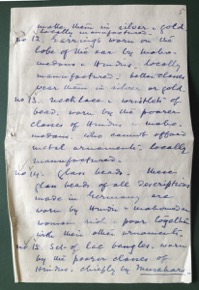 5
matter them in silver & gold
locally manufactured.
no 12. Earrings worn on the
lobe of the ear by maho-
madans & Hindus, locally
manufactured. better classes
wear them in silver or gold.
no 13. necklace & wristlets of
bead, worn by the poorer
classes of Hindus & maho-
madans who cannot afford
metal ornaments, locally
manufactured.
no 14. Glass beads. These
glass beads of all descriptions
made in Germany are
worn by Hindu & mahomedan
women rich & poor together
with their other ornaments.
Set of lac bangles, worn
by the poorer classes of
Hindus, chiefly by